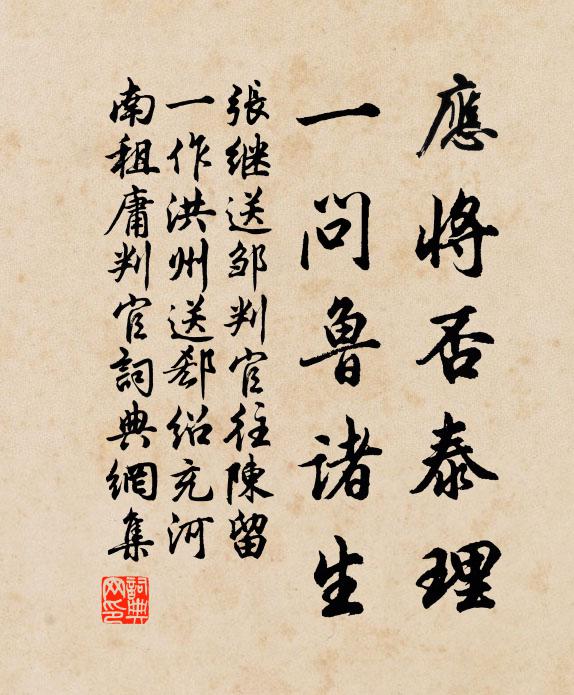 應將否泰理
一問魯诸生
張继送邹判官往陳留
一作洪州送郄绍充河
南租庸判官詞典網集
詞典网印